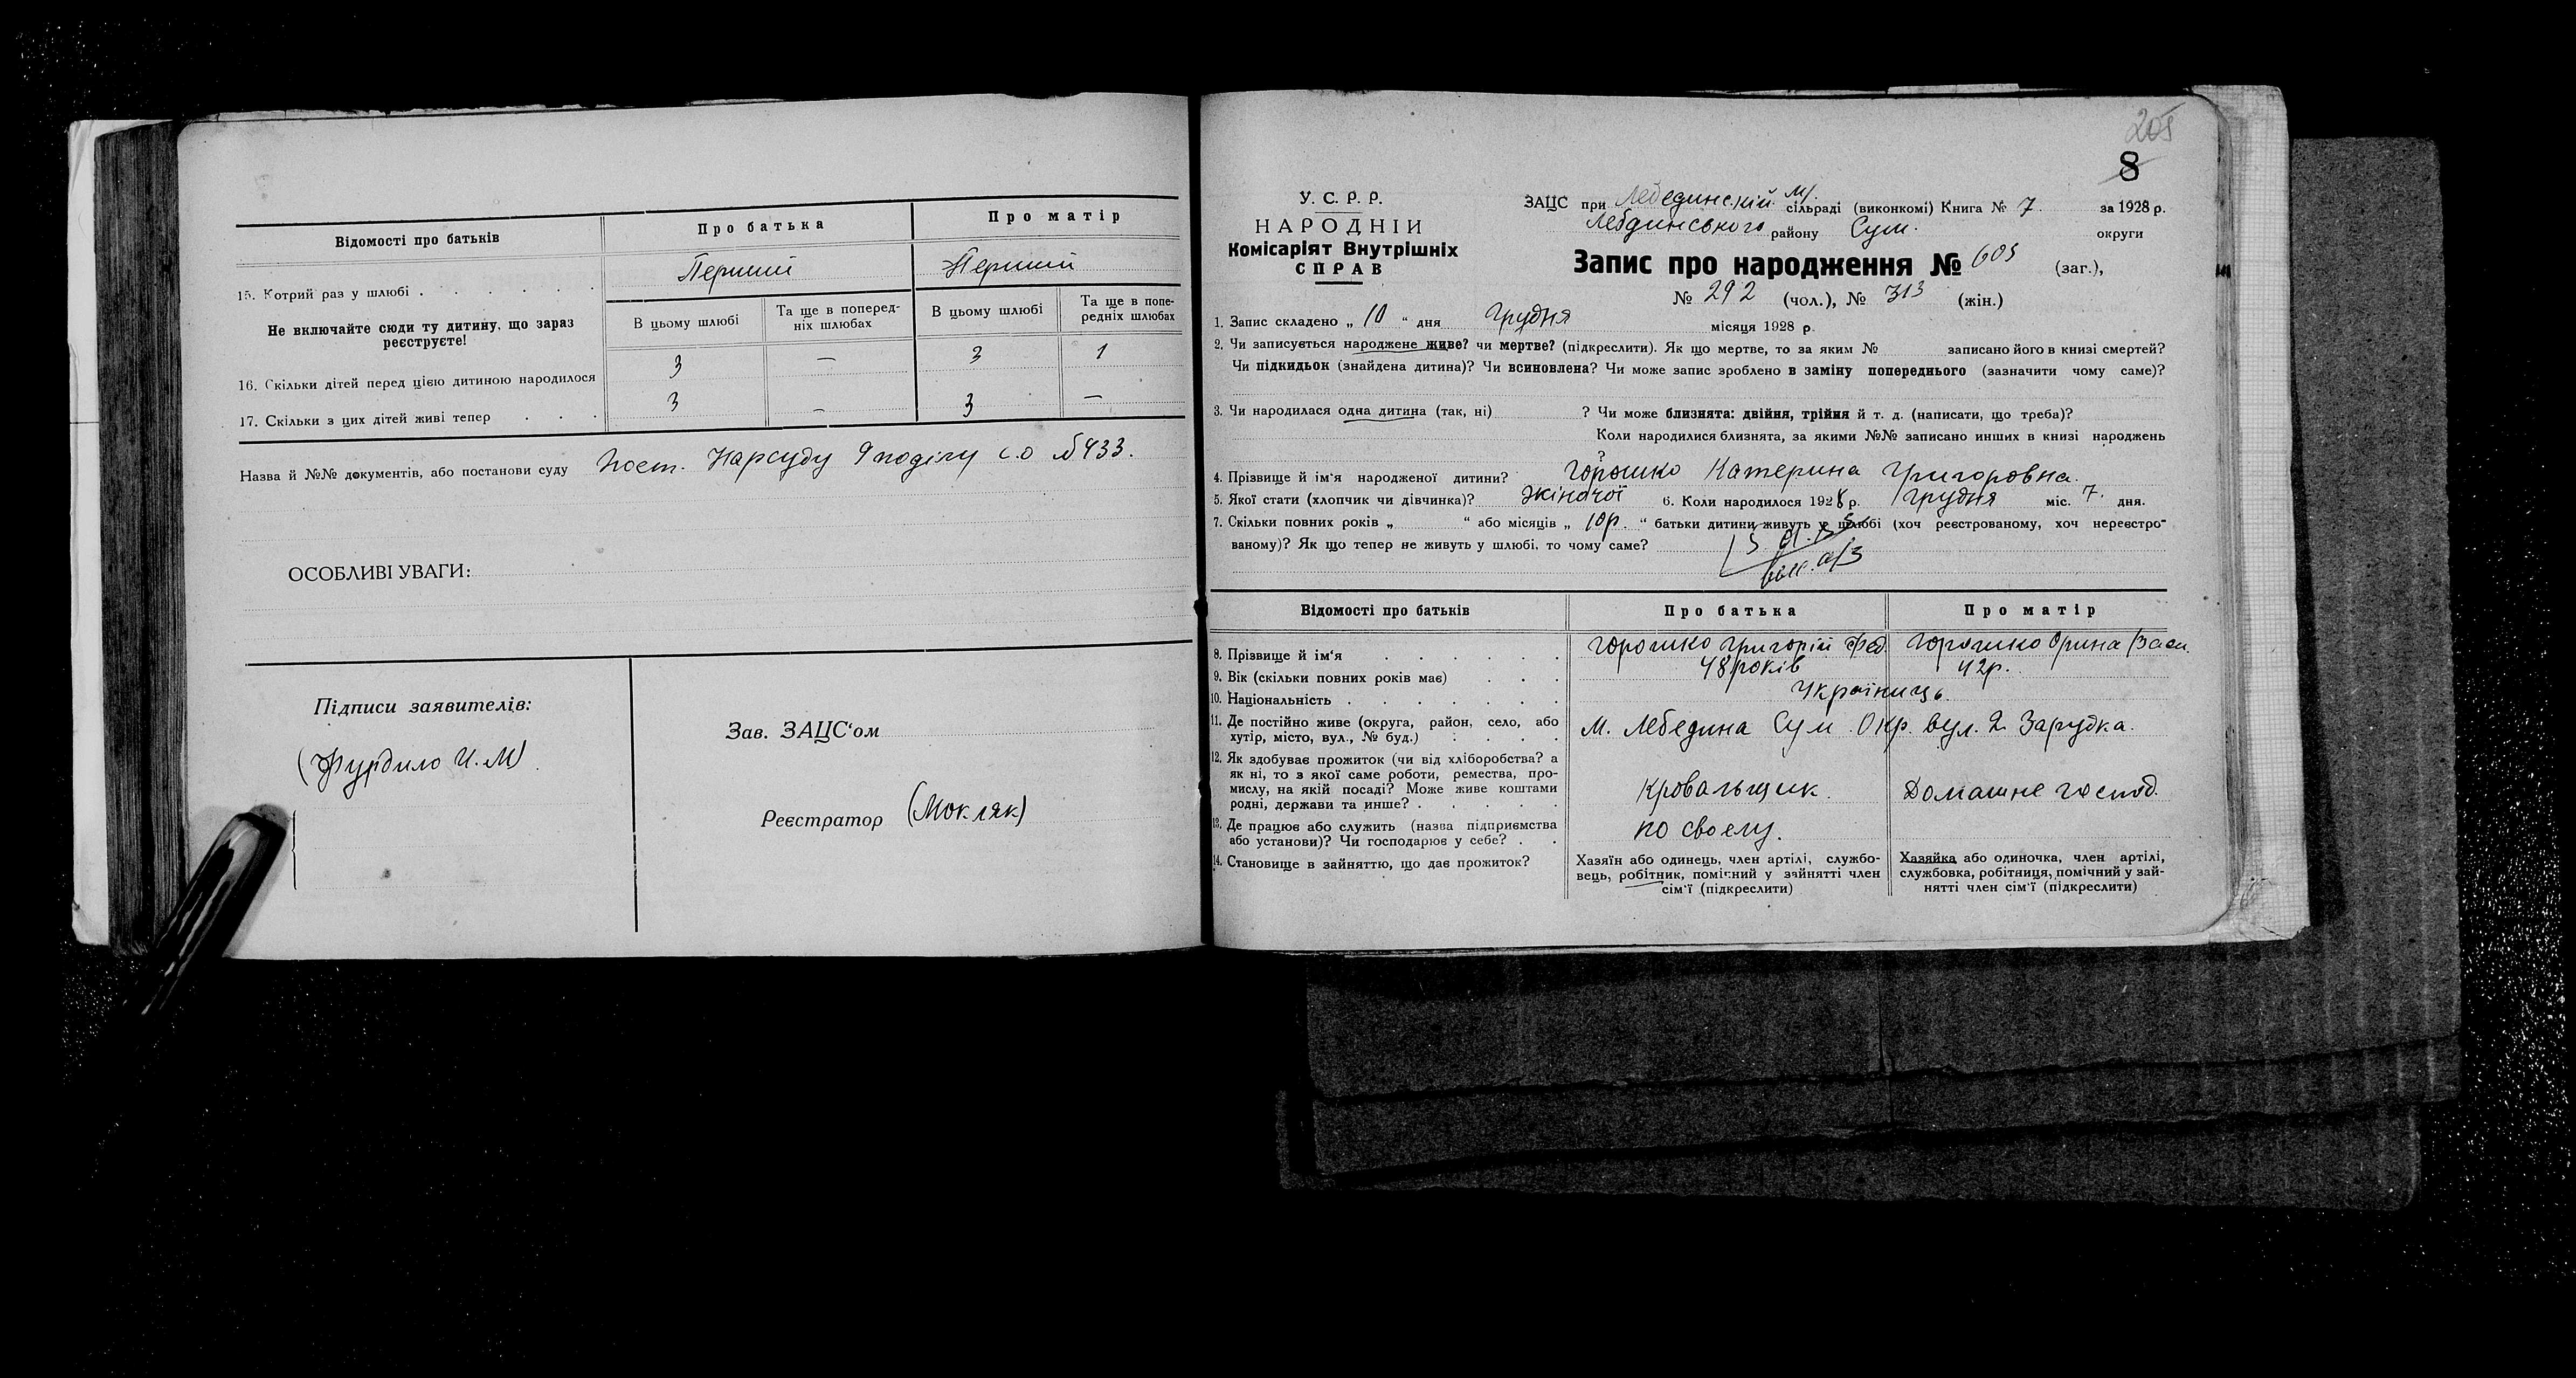 Відомості про батьків
Про батька
Про матір
15. Котрий раз у шлюбі
Перший
Перший
Не включайте сюди ту дитину, що зараз
реєструєте!
В цьому шлюбі
Та ще в поперед-
ніх шлюбах
В цьому шлюбі
Та ще в попе-
редніх шлюбах
16. Скільки дітей перед цією дитиною народилося
3
—
3
1
17. Скільки з цих дітей живі тепер
3
—
3
—
Назва й №№ документів, або постанови суду Пост. Нарсуду с.о № 433.
ОСОБЛИВІ УВАГИ:
Підписи заявителів:
(Фурдило И. М)
Зав. ЗАЦС'ом
Реєстратор (Мокляк)
205
8
У. С. Р. Р.
НАРОДНІЙ
Комісаріят Внутрішніх
СПРАВ
ЗАЦС при Лебединській м/сільраді (виконкомі) Книга № 7 за 1928 р.
Лебдинського району Сум. округи
Запис про народження № 605 (заг.),
№ 292 (чол.), № 313 (жін.)
1. Запис складено „ 10 “ дня Грудня місяця 1928 р.
2. Чи записується народжене живе? чи мертве? (підкреслити). Як що мертве, то за яким № записано його в книзі смертей?
Чи підкидьок (знайдена дитина)? Чи всиновлена? Чи може запис зроблено в заміну попереднього (зазначити чому саме)?
3. Чи народилася одна дитина (так, ні) ? Чи може близнята: двійня, трійня й т. д. (написати, що треба)?
Коли народилися близнята, за якими №№ записано инших в книзі народжень
?
4. Прізвище й ім'я народженої дитини? Горошко Катерина Григоровна.
5. Якої стати (хлопчик чи дівчинка)? жіночої 6. Коли народилося 1928 р. Грудня міс. 7. дня.
7. Скільки повних років „ “ або місяців „ 10р. “ батьки дитини живуть у шлюбі (хоч реєстрованому, хоч нереєстро-
ваному)? Як що тепер не живуть у шлюбі, то чому саме?
Відомості про батьків
Про батька
Про матір
8. Прізвище й ім'я
Горошко Григорій Фед.
Горошко Орина Васи.
9. Вік (скільки повних років має)
48 років
42р.
10. Національність
Українець.
11. Де постійно живе (округа, район, село, або
хутір, місто, вул., № буд.)
М. Лебедина Сум. Окр. вул. 2 Зарудка.
12. Як здобуває прожиток (чи від хліборобства? а
як ні, то з якої саме роботи, ремества, про-
мислу, на якій посаді? Може живе коштами
родні, держави та инше?
Кровальщик.
Домашнє господ.
13. Де працює або служить (назва підприємства
або установи)? Чи господарює у себе?
по своєму.
14. Становище в зайняттю, що дає прожиток?
Хазяїн або одинець, член артілі, службо-
вець, робітник, помічний у зайнятті член
сім'ї (підкреслити)
Хазяйка або одиночка, член артілі,
службовка, робітниця, помічний у зай-
нятті член сім'ї (підкреслити)